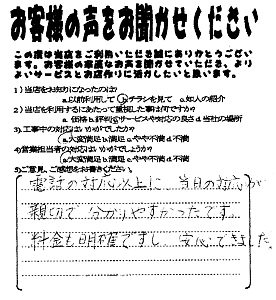 お客様の声をお聞かせください
この度は当店をご利用いただき誠にありがとうござい
ます。お客様の率直なお声をお聞かせていただき、より
よいサービスとお店作りに活かしたいと思います。
1)当店をお知りになったのは?
a.以前利用して b.チラシを見て c.知人の紹介
2)当店を利用するにあたって重視した事は何ですか?
a.価格 b.評判 c.サービスや対応の良さ d.当社の場所
3)工事中の対応はいかがでしたか?
a.大変満足 b.満足 c.やや不満 d.不満
4)営業担当者の対応はいかがでしょうか?
a.大変満足 b.満足 c.やや不満 d.不満
5)ご意見、ご感想をお書きください。
電話の対応以上に、当日の対応が
親切で分かりやすかったです。
料金も明確ですし、安心できました。